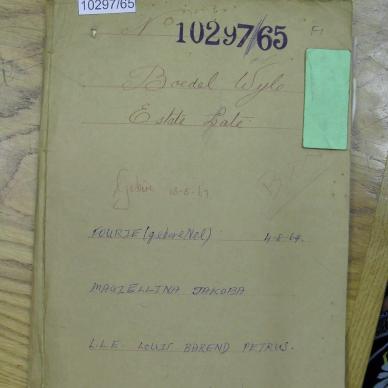 10297/65
No 10297/65
Boedel Wyle
Estate Late
18-8-69
FOURIE (gebore Nel) 4-8-64.
MAGIELLINA JAKOBA
L.L.E. LOUIS BAREND PETRUS.